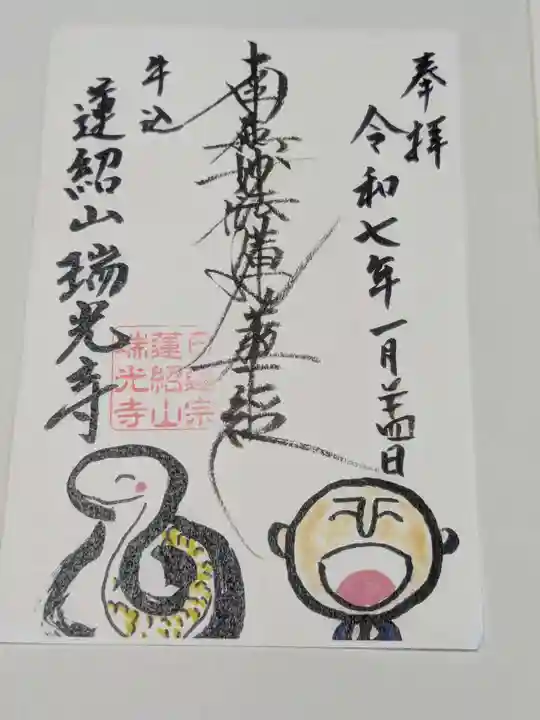 奉拝
令和七年一月日
南無妙法蓮華経
牛込
蓮紹山瑞光寺
日蓮宗
蓮紹山
瑞光寺